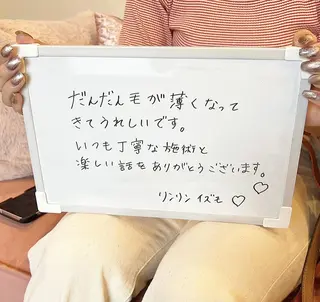 だんだん毛が薄くなって
きてうれしいです。
いつも丁寧な施術と
楽しい話をありがとうございます。
リンリン イズモ